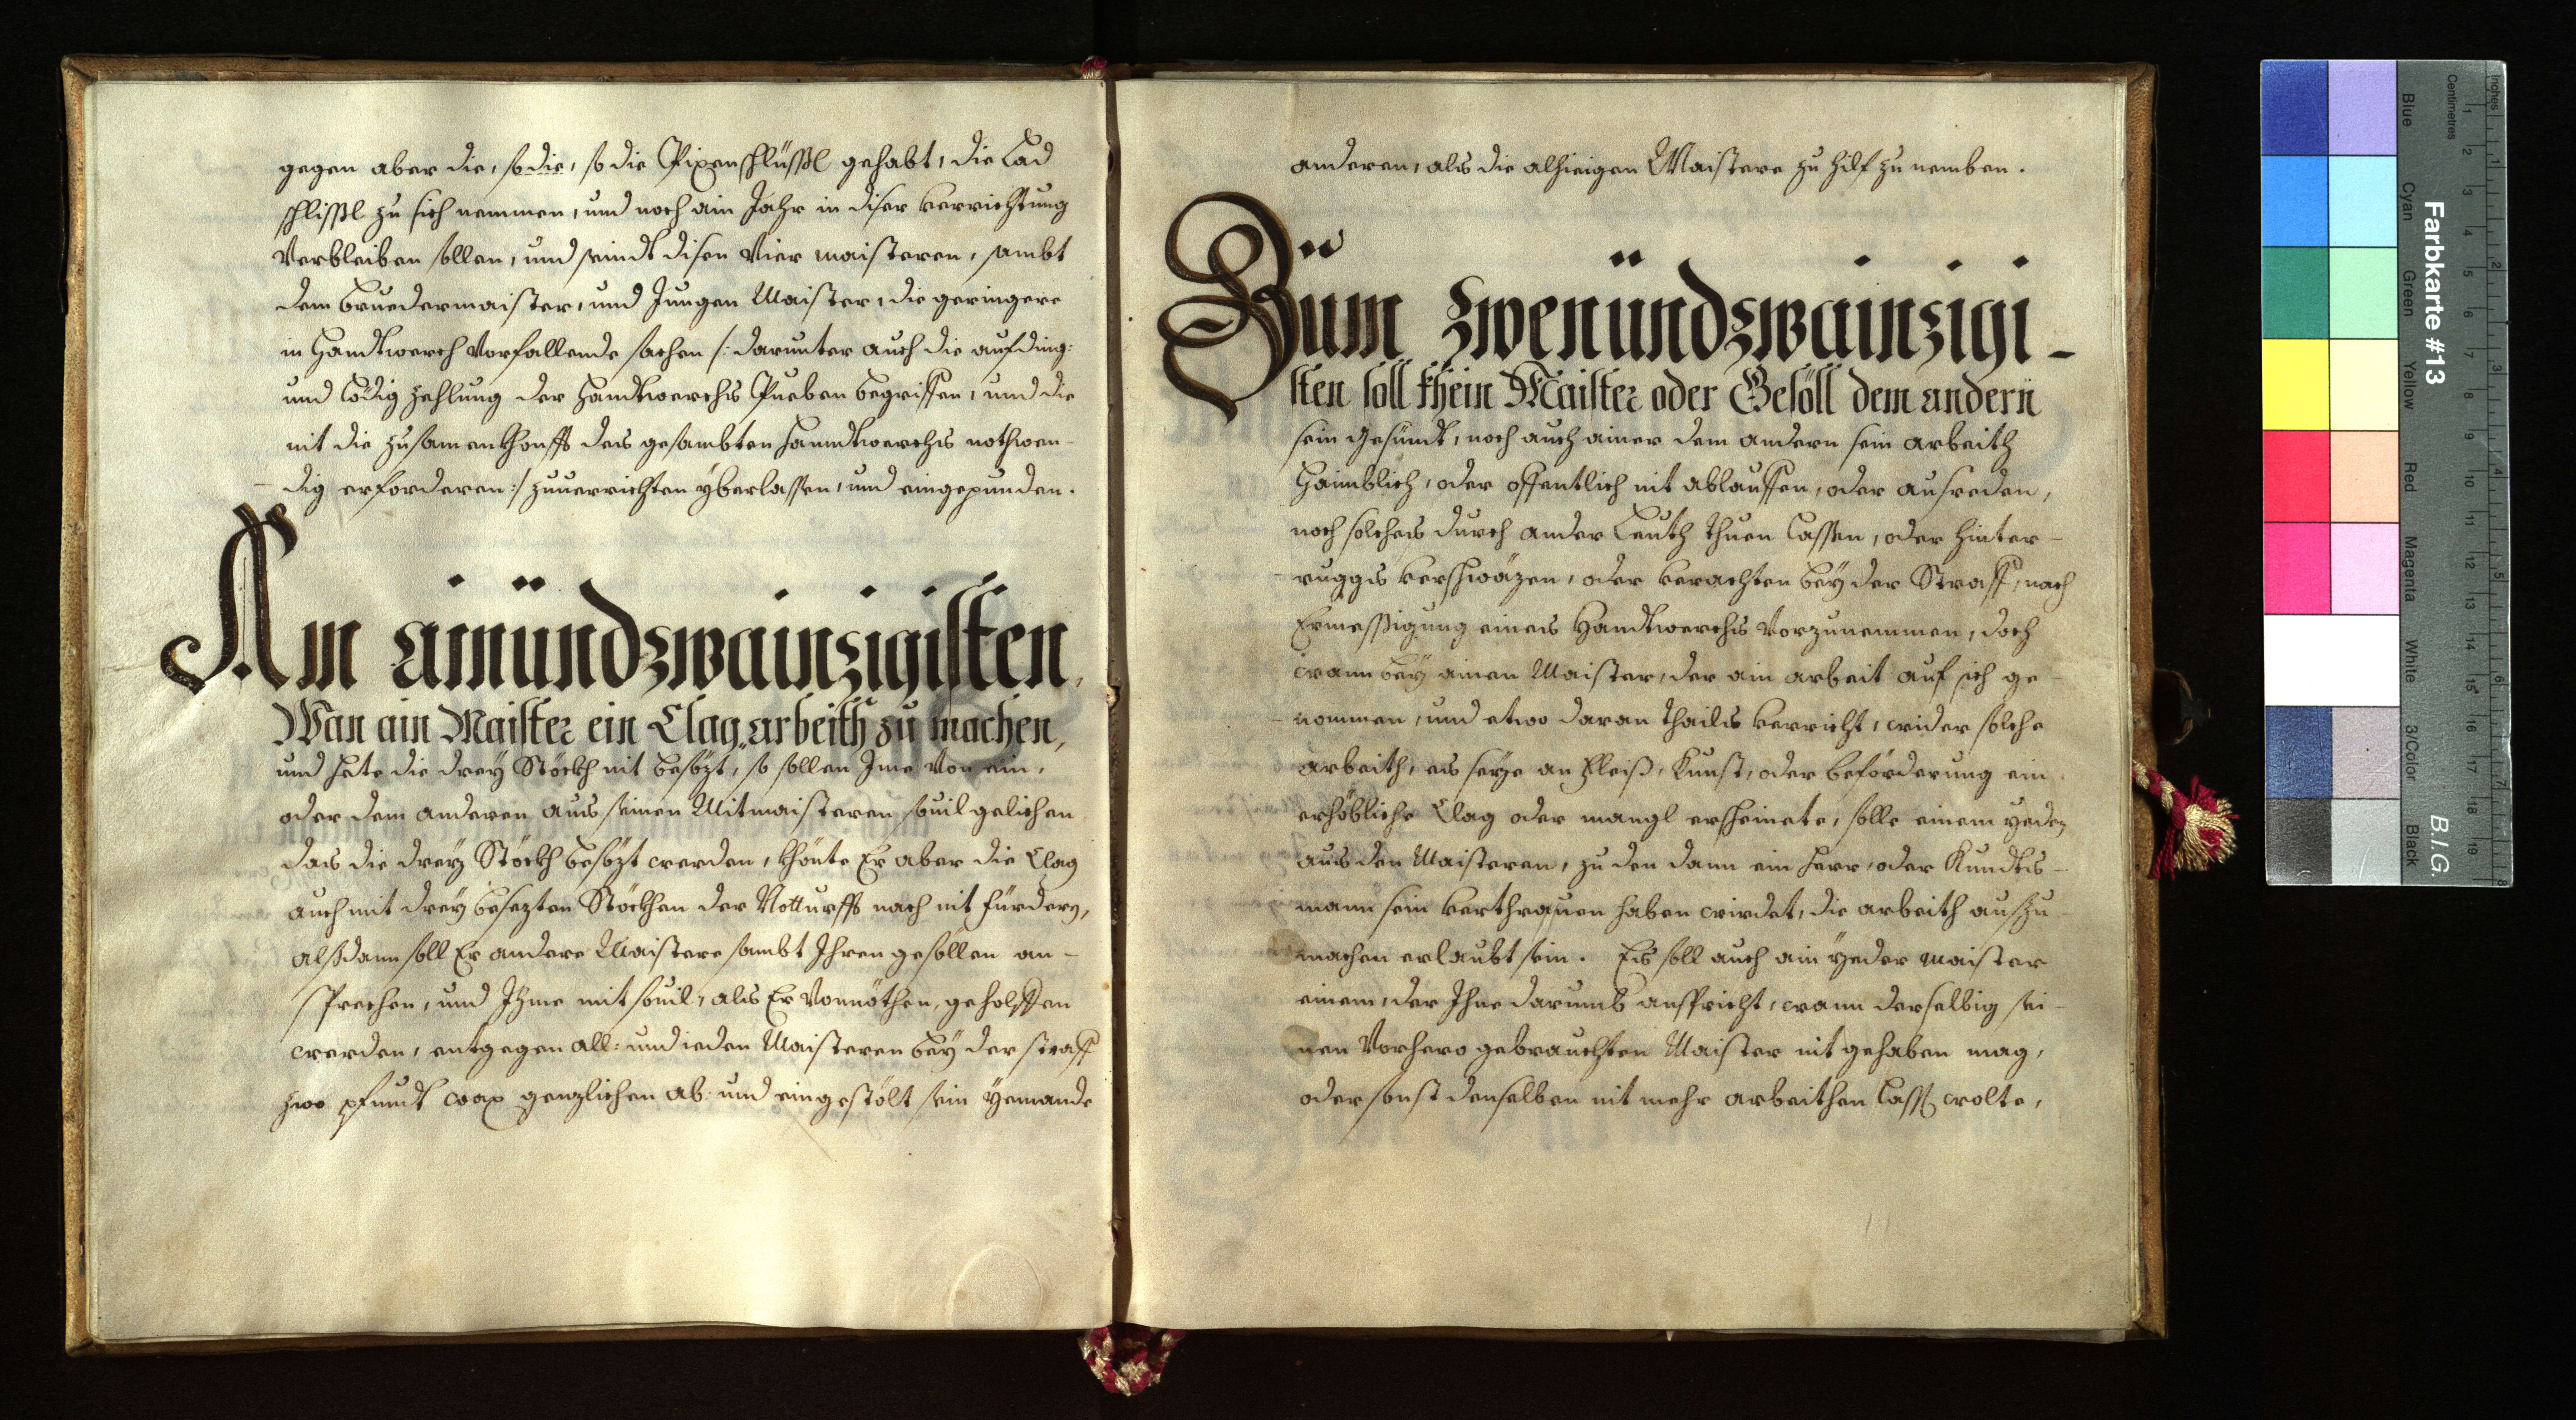 gegen aber die, so die, so die Pixenschlüssl gehabt, die Lad
schlissl zu sich nemmen, und noch ain Jahr in diser verrichtung
Verbleiben sollen, und seindt disen Vier maisteren, sambt
dem Bruedermaister, und Jungen Maister, die geringere
in Handtwerch Vorfallende sachen /: darunter auch die aufding:
und Lödigzehlung der Handtwerchs Pueben begriffen, und die
nit die zusamenkhonfft des gesambten Hanndtwerchs nothwen-
dig erforderen :/ zuuerrichten yberlassen, und eingepunden.
Am ainündzwainzigisten,
Wan ain Maister ein Clag arbeith zu machen,
und hete die drey Stöckh nit besözt, so sollen Ime Von ein,
oder dem anderen aus seinen Mitmaisteren souil gelichen
das die drey Stöckh besözt werden, khönte Er aber die Clag
auch mit drey besezten Stöckhen der Notturfft nach nit fürdern,
alßdann soll Er andere Maistere sambt Ihren gesöllen an-
sprechen, und Ihme mit souil, als Er Vonnöthen, geholffen
werden, entgegen all: und ieden Maisteren bey der straff
zwo pfundt wax genzlichen ab: und eingestölt sein yemande
anderen, als die alhieigen Maistere zu hilf zu nemben.
Züm zwenündzwainzigi-
sten soll khein Maister oder Gesöll dem andern
sein Gesündt, noch auch ainer dem andern sein arbeith
Haimblich, oder offentlich nit ablauffen, oder ausreden,
noch solches durch ander Leuth thuen Lassen, oder hinter-
ruggs verschwäzen, oder verachten bey der Straff, nach
Ermessigung eines Handtwerchs Vorzunemmen, doch
wann bey ainen Maister, der ain arbeit auf sich ge-
nommen, und etwo daran thails verricht, wider solche
arbeith, es seye an Fleiß, Kunst, oder beförderung ein
erhöbliche Clag oder mangl erscheinete, solle einem yeden
aus den Maisteren, zu den dann ein Herr, oder Kundts-
mann sein verthrauen haben wirdet, die arbeith auszu-
machen erlaubt sein. Es soll auch ain yeder maister
einem, der Ihne darumb anspricht, wann derselbig sei-
nen Vorhero gebrauchten Maister nit gehaben mag,
oder sonst denselben nit mehr arbeithen Lassen wolte,
Farbkarte #13
B.I.G.
Inches
Centimetres
Blue
Cyan
Green
Yellow
Red
Magenta
White
3/Color
Black